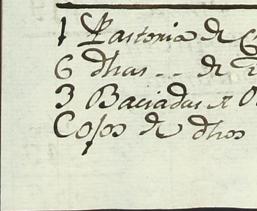 1 Pastoria de
6 dhas .. de
3 Baciadas
Cosos de dhos